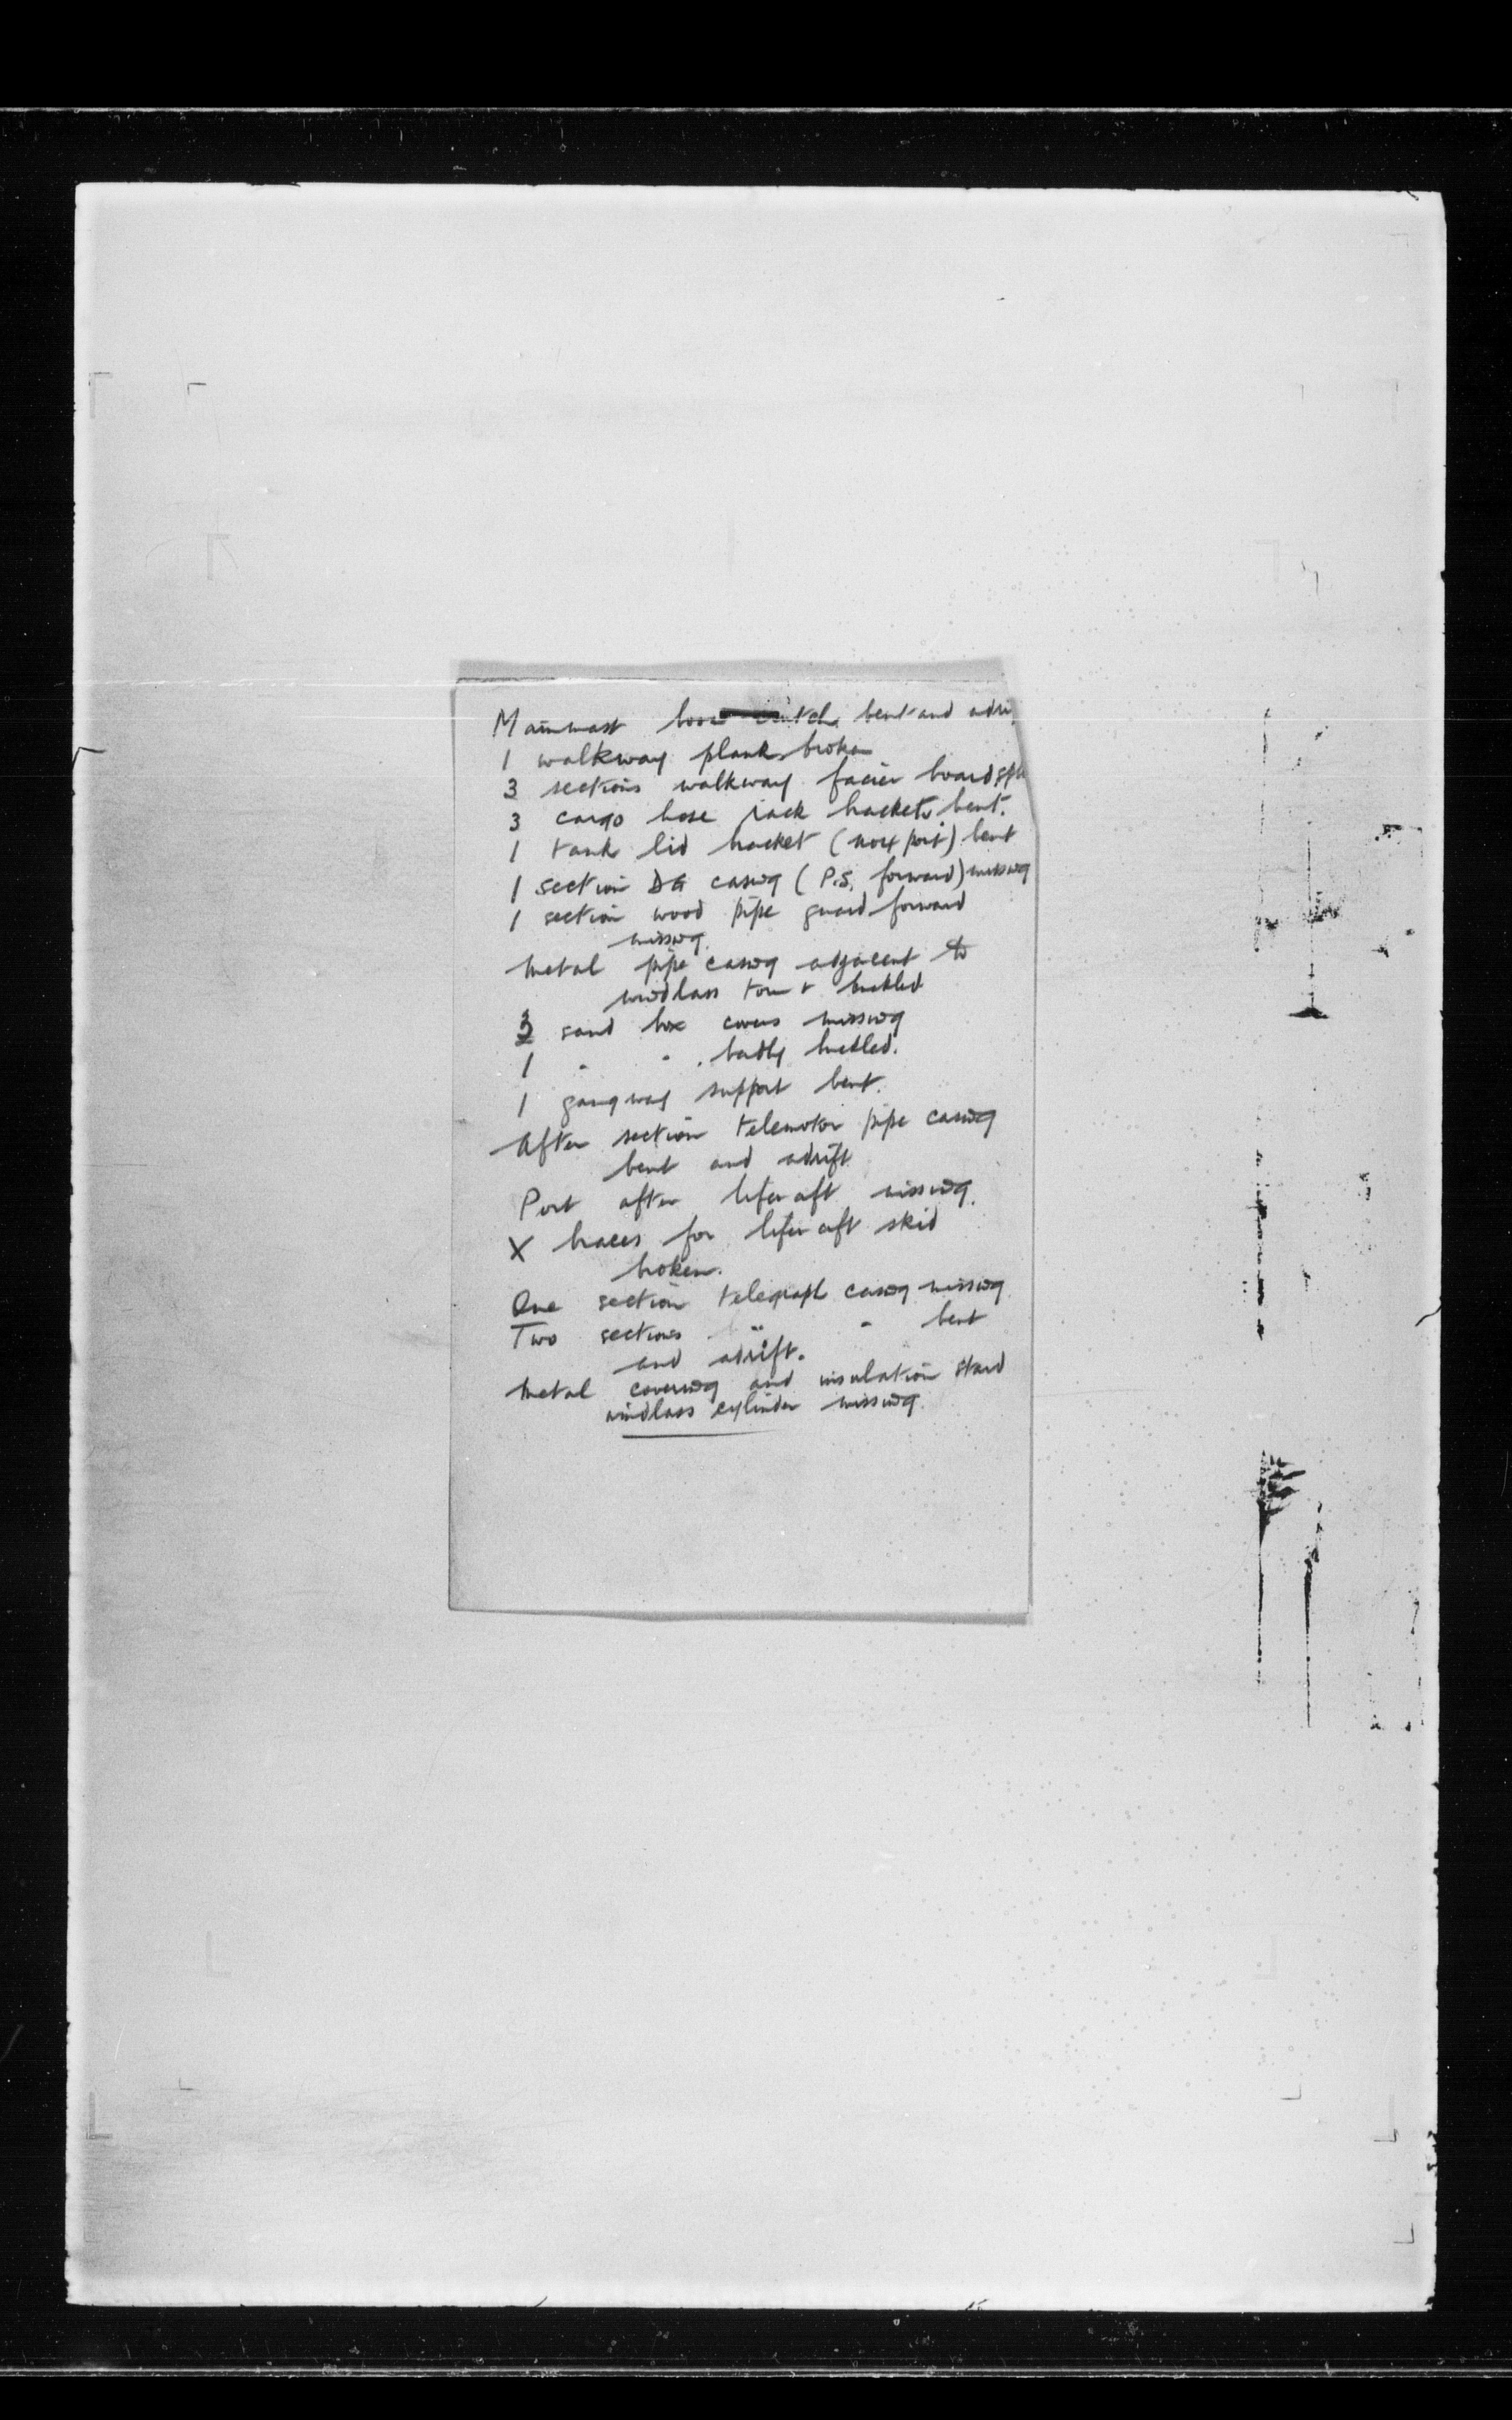 Mainmast bent and adri
1 walkway plank broken
3 sections walkway facia boards spli
3 cargo hose rack brackets bent.
1 tank lid bracket (No 4 port) bent
1 section DG casing (P.S. forward) missing
1 section wood pipe guard forward
missing.
Metal pipe casing adjacent to
windlass buckled
3 sand box covers missing
1 " " . badly buckled.
1 gangway support bent.
After section telemotor pipe casing
bent and adrift
Port after liferaft missing.
X braces for liferaft skid
broken.
One section telegraph casing missing
Two sections " " bent
and adrift.
Metal covering and insulation stard
windlass cylinder missing.